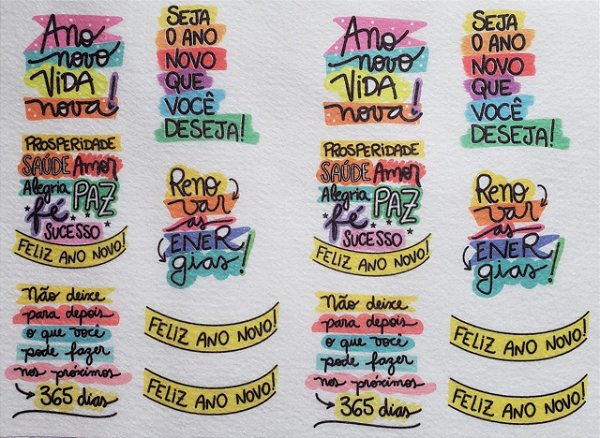 Ano
novo
VIDA
nova!
SEJA
O ANO
NOVO
QUE
VOCÊ
DESEJA!
PROSPERIDADE
SAÚDE Amor
Alegria PAZ
fé
SUCESSO
FELIZ ANO NOVO!
Reno
var
as
ENER
gias!
Não deixe
para depois
o que você
pode fazer
nos próximos
365 dias
FELIZ ANO NOVO!
FELIZ ANO NOVO!
Ano
novo
VIDA
nova!
SEJA
O ANO
NOVO
QUE
VOCÊ
DESEJA!
PROSPERIDADE
SAÚDE Amor
Alegria PAZ
fé
SUCESSO
FELIZ ANO NOVO!
Reno
var
as
ENER
gias!
Não deixe
para depois
o que você
pode fazer
nos próximos
365 dias
FELIZ ANO NOVO!
FELIZ ANO NOVO!